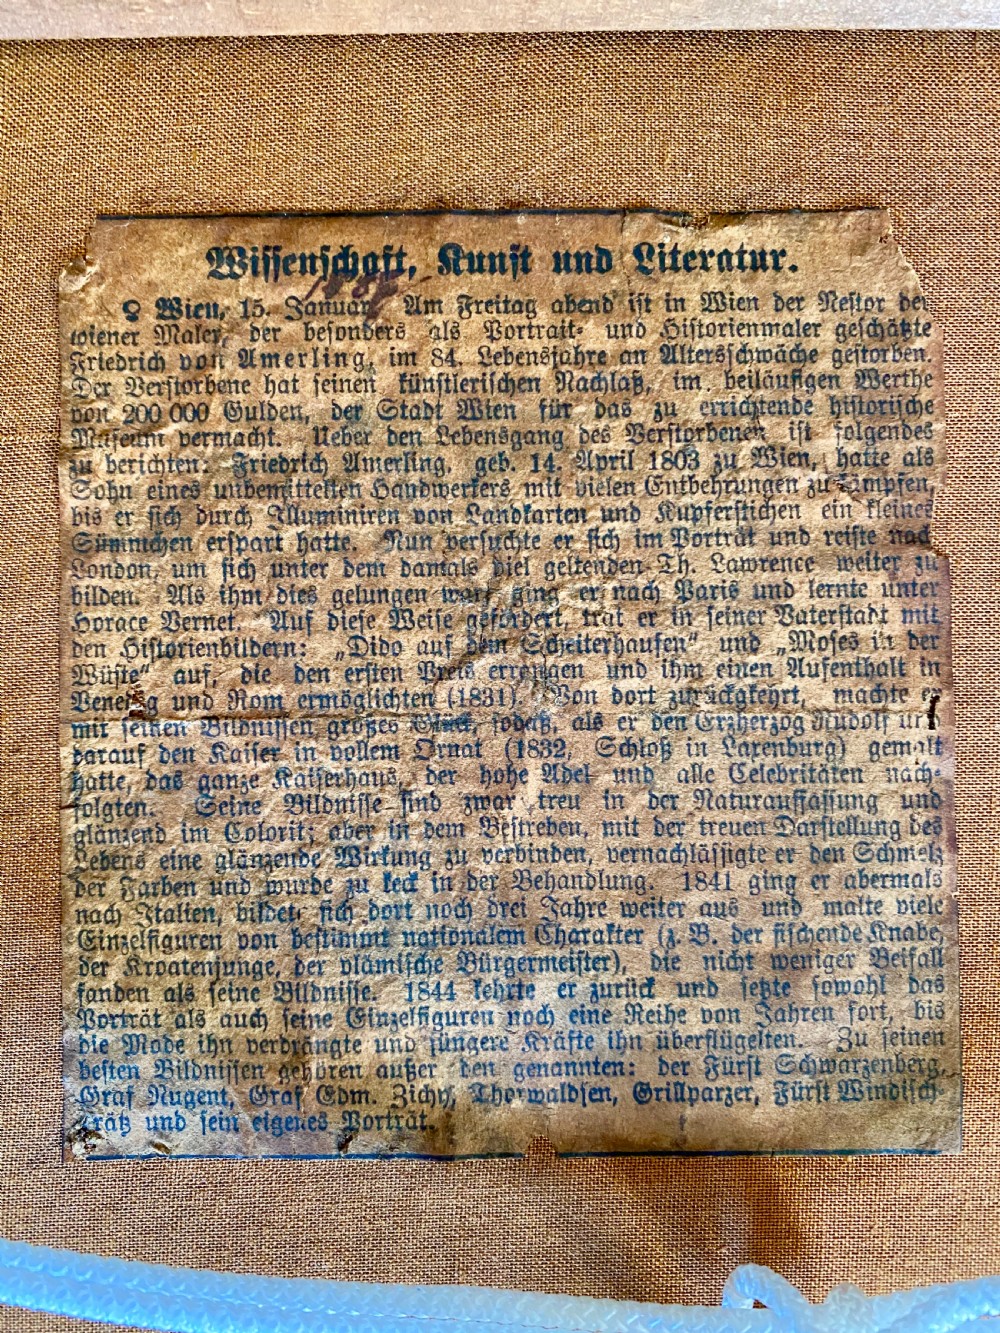 Wissenschaft, Kunst und Literatur.
♀ Wien, 15. Januar. Am Freitag abend ist in Wien der Nestor der
wiener Maler, der besonders als Portrait- und Historienmaler geschätzte
Friedrich von Amerling, im 84. Lebensjahre an Altersschwäche gestorben.
Der Verstorbene hat seinen künstlerischen Nachlaß, im beiläufigen Werthe
von 200 000 Gulden, der Stadt Wien für das zu errichtende historische
Museum vermacht. Ueber den Lebensgang des Verstorbenen ist folgendes
zu berichten: Friedrich Amerling, geb. 14. April 1803 zu Wien, hatte als
Sohn eines unbemittelten Handwerkers mit vielen Entbehrungen zu kämpfen,
bis er sich durch Illuminiren von Landkarten und Kupferstichen ein kleines
Sümmchen erspart hatte. Nun versuchte er sich im Porträt und reiste nach
London, um sich unter dem damals viel geltenden Th. Lawrence weiter zu
bilden. Als ihm dies gelungen war, ging er nach Paris und lernte unter
Horace Vernet. Auf diese Weise gefördert, trat er in seiner Vaterstadt mit
den Historienbildern: „Dido auf dem Scheiterhaufen“ und „Moses in der
Wüste“ auf, die den ersten Preis errangen und ihm einen Aufenthalt in
Venedig und Rom ermöglichten (1831). Von dort zurückgekehrt, machte er
mit seinen Bildnissen großes Glück, sodaß, als er den Erzherzog Rudolf und
darauf den Kaiser in vollem Ornat (1832, Schloß in Laxenburg) gemalt
hatte, das ganze Kaiserhaus, der hohe Adel und alle Celebritäten nach-
folgten. Seine Bildnisse sind zwar treu in der Naturauffassung und
glänzend im Colorit; aber in dem Bestreben, mit der treuen Darstellung des
Lebens eine glänzende Wirkung zu verbinden, vernachlässigte er den Schmelz
der Farben und wurde zu keck in der Behandlung. 1841 ging er abermals
nach Italien, bildete sich dort noch drei Jahre weiter aus und malte viele
Einzelfiguren von bestimmt nationalem Charakter (z. B. der fischende Knabe,
der Kroatenjunge, der vlämische Bürgermeister), die nicht weniger Beifall
fanden als seine Bildnisse. 1844 kehrte er zurück und setzte sowohl das
Porträt als auch seine Einzelfiguren noch eine Reihe von Jahren fort, bis
die Mode ihn verdrängte und jüngere Kräfte ihn überflügelten. Zu seinen
besten Bildnissen gehören außer den genannten: der Fürst Schwarzenberg,
Graf Nugent, Graf Edm. Zichy, Thorwaldsen, Grillparzer, Fürst Windisch-
grätz und sein eigenes Porträt.